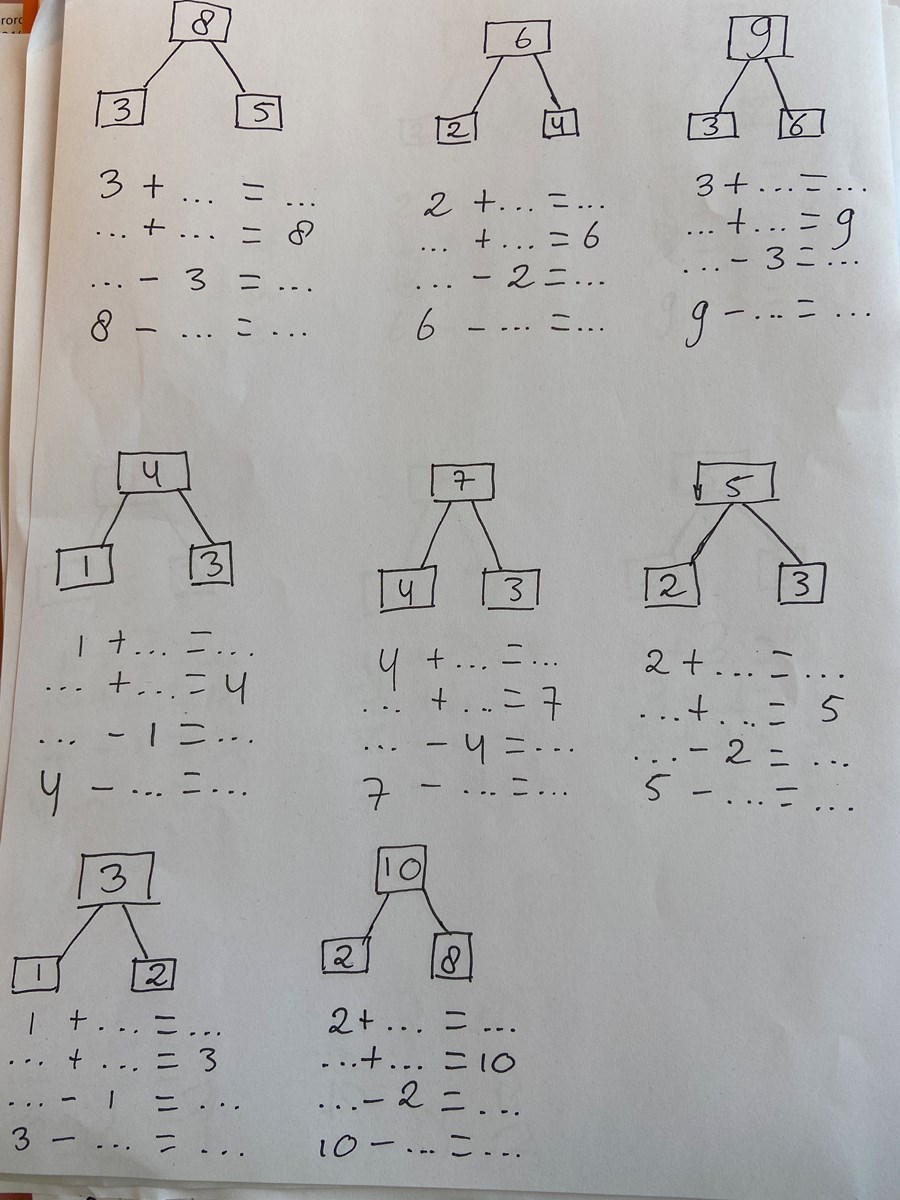 8
3 5
3 + ... = ...
... + ... = 8
... - 3 = ...
8 - ... = ...
6
2 4
2 + ... = ...
... + ... = 6
... - 2 = ...
6 - ... = ...
9
3 6
3 + ... = ...
... + ... = 9
... - 3 = ...
9 - ... = ...
4
1 3
1 + ... = ...
... + ... = 4
... - 1 = ...
4 - ... = ...
7
4 3
4 + ... = ...
... + ... = 7
... - 4 = ...
7 - ... = ...
5
2 3
2 + ... = ...
... + ... = 5
... - 2 = ...
5 - ... = ...
3
1 2
1 + ... = ...
... + ... = 3
... - 1 = ...
3 - ... = ...
10
2 8
2 + ... = ...
... + ... = 10
... - 2 = ...
10 - ... = ...